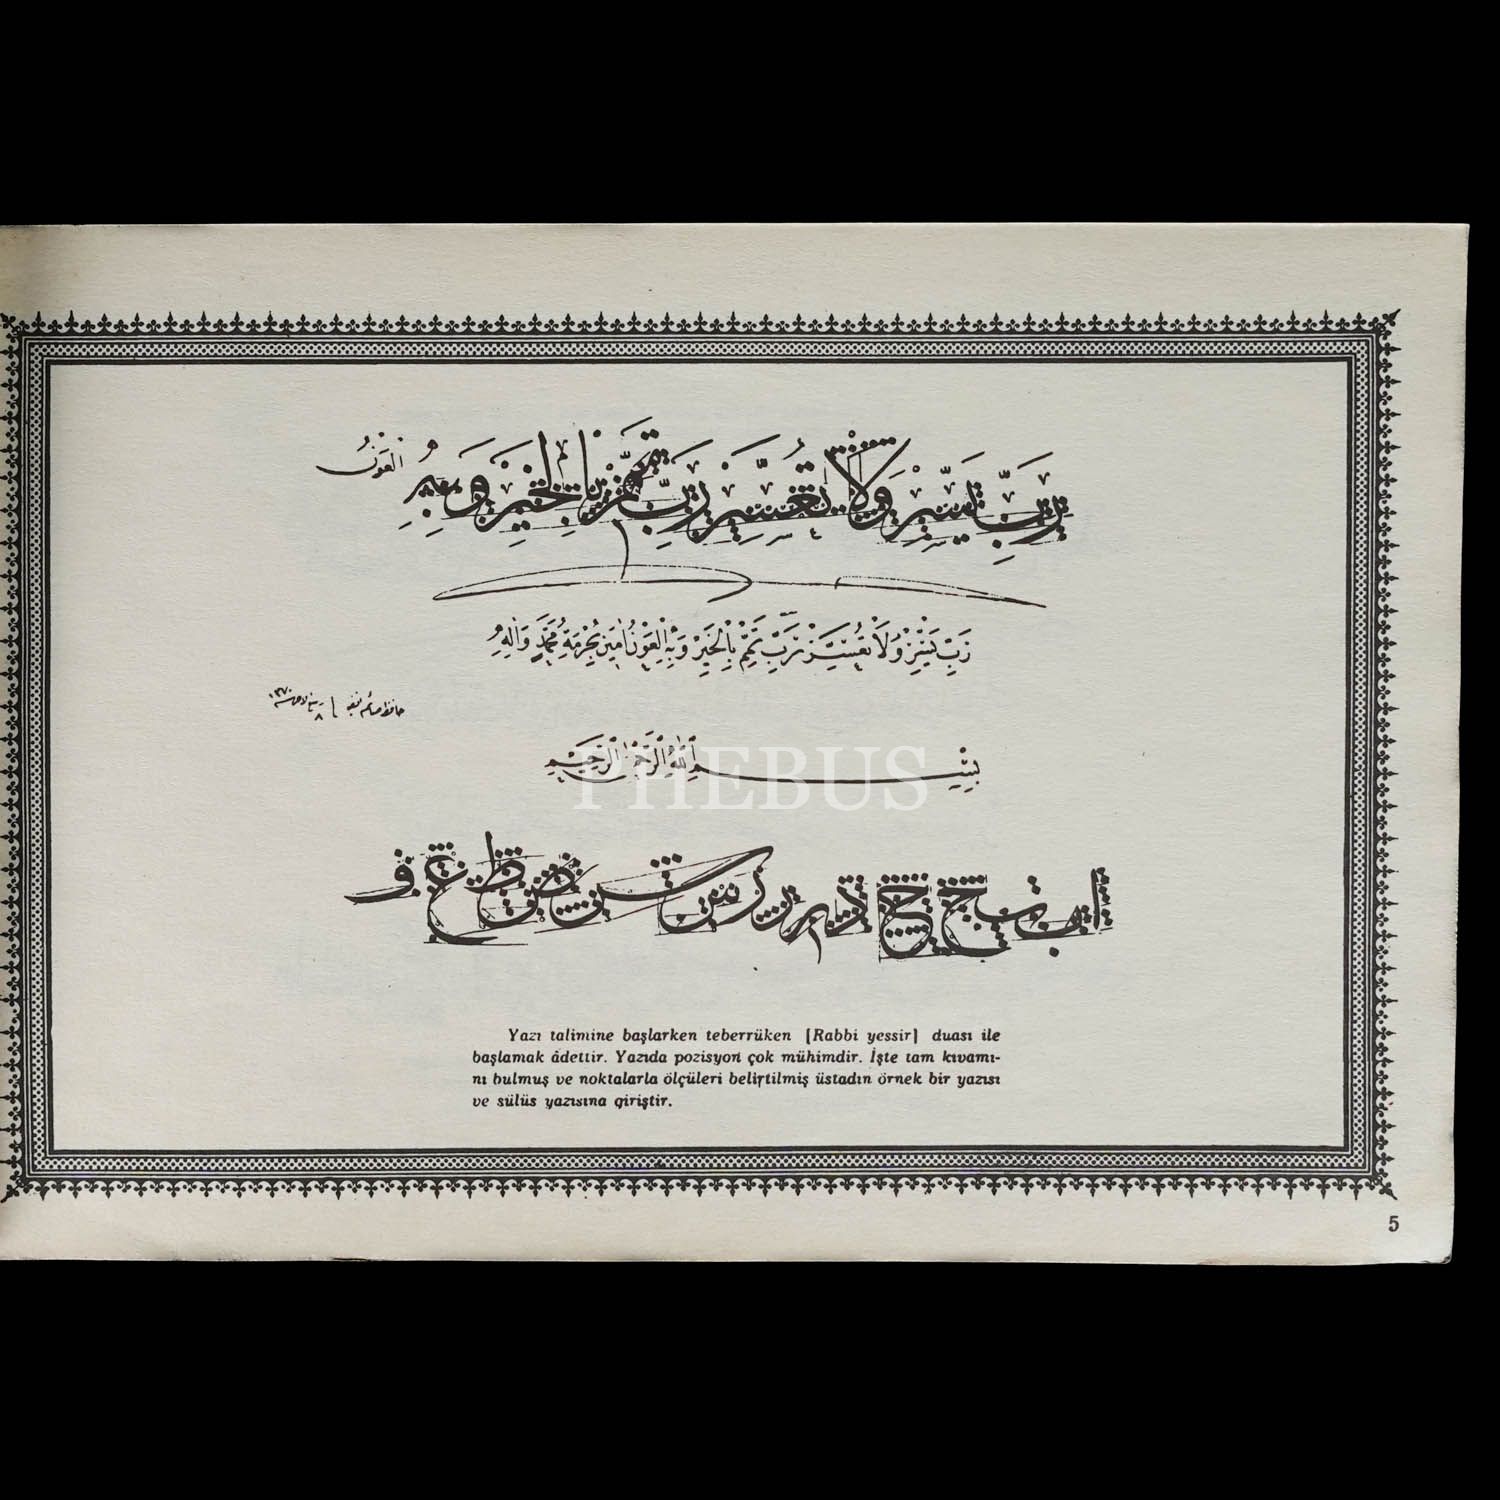 رَبِّ يَسِّرْ وَلَا تُعَسِّرْ رَبِّ تَمِّمْ بِالْخَيْرِ وَبِهِ الْعَوْنُ
رَبِّ يَسِّرْ وَلَا تُعَسِّرْ رَبِّ تَمِّمْ بِالْخَيْرِ وَبِهِ الْعَوْنُ اٰمِينَ بِحُرْمَةِ مُحَمَّدٍ وَاٰلِهِ
١٣٧٠
بِسْمِ اللهِ الرَّحْمٰنِ الرَّحِيمِ
PHEBUS
Yazı talimine başlarken teberrüken [Rabbi yessir] duası ile
başlamak âdettir. Yazıda pozisyon çok mühimdir. İşte tam kıvamı-
nı bulmuş ve noktalarla ölçüleri belirtilmiş üstadın örnek bir yazısı
ve sülüs yazısına giriştir.
5